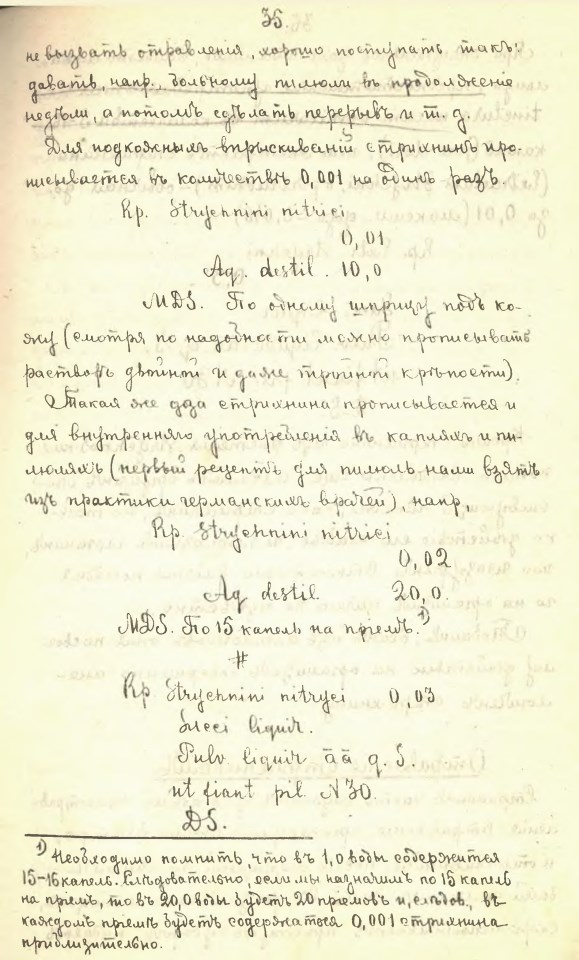 35.
не вызвать отравленія, хорошо поступать такъ:
давать, напр., больному пилюли въ продолженіе
недѣли, а потомъ сдѣлать перерывъ и т. д.
Для подкожныхъ впрыскиваній стрихнинъ про-
писывается въ количествѣ 0,001 на одинъ разъ.
Rp. Strychnini nitrici
0,01
Aq. destil. 10,0
MDS. По одному шприцу подъ ко-
жу (смотря по надобности можно прописывать
растворъ двойной и даже тройной крѣпости).
Такая же доза стрихнина прописывается и
для внутренняго употребленія въ капляхъ и пи-
люляхъ (первый рецептъ для пилюль нами взятъ
изъ практики германскихъ врачей), напр.,
Rp. Strychnini nitrici
0,02
Aq destil. 20,0.
MDS. По 15 капель на пріемъ.1)
#
Rp Strychnini nitryci 0,03
Succi liquir.
Pulv. liquir āā q. S.
ut fiant pil. N 30.
DS.
1) Необходимо помнить, что въ 1,0 воды содержится
15-16 капель. Слѣдовательно, если мы назначимъ по 15 капель
на пріемъ, то въ 20,0 воды будетъ 20 пріемовъ и, слѣдов., въ
каждомъ пріемѣ будетъ содержаться 0,001 стрихнина
приблизительно.